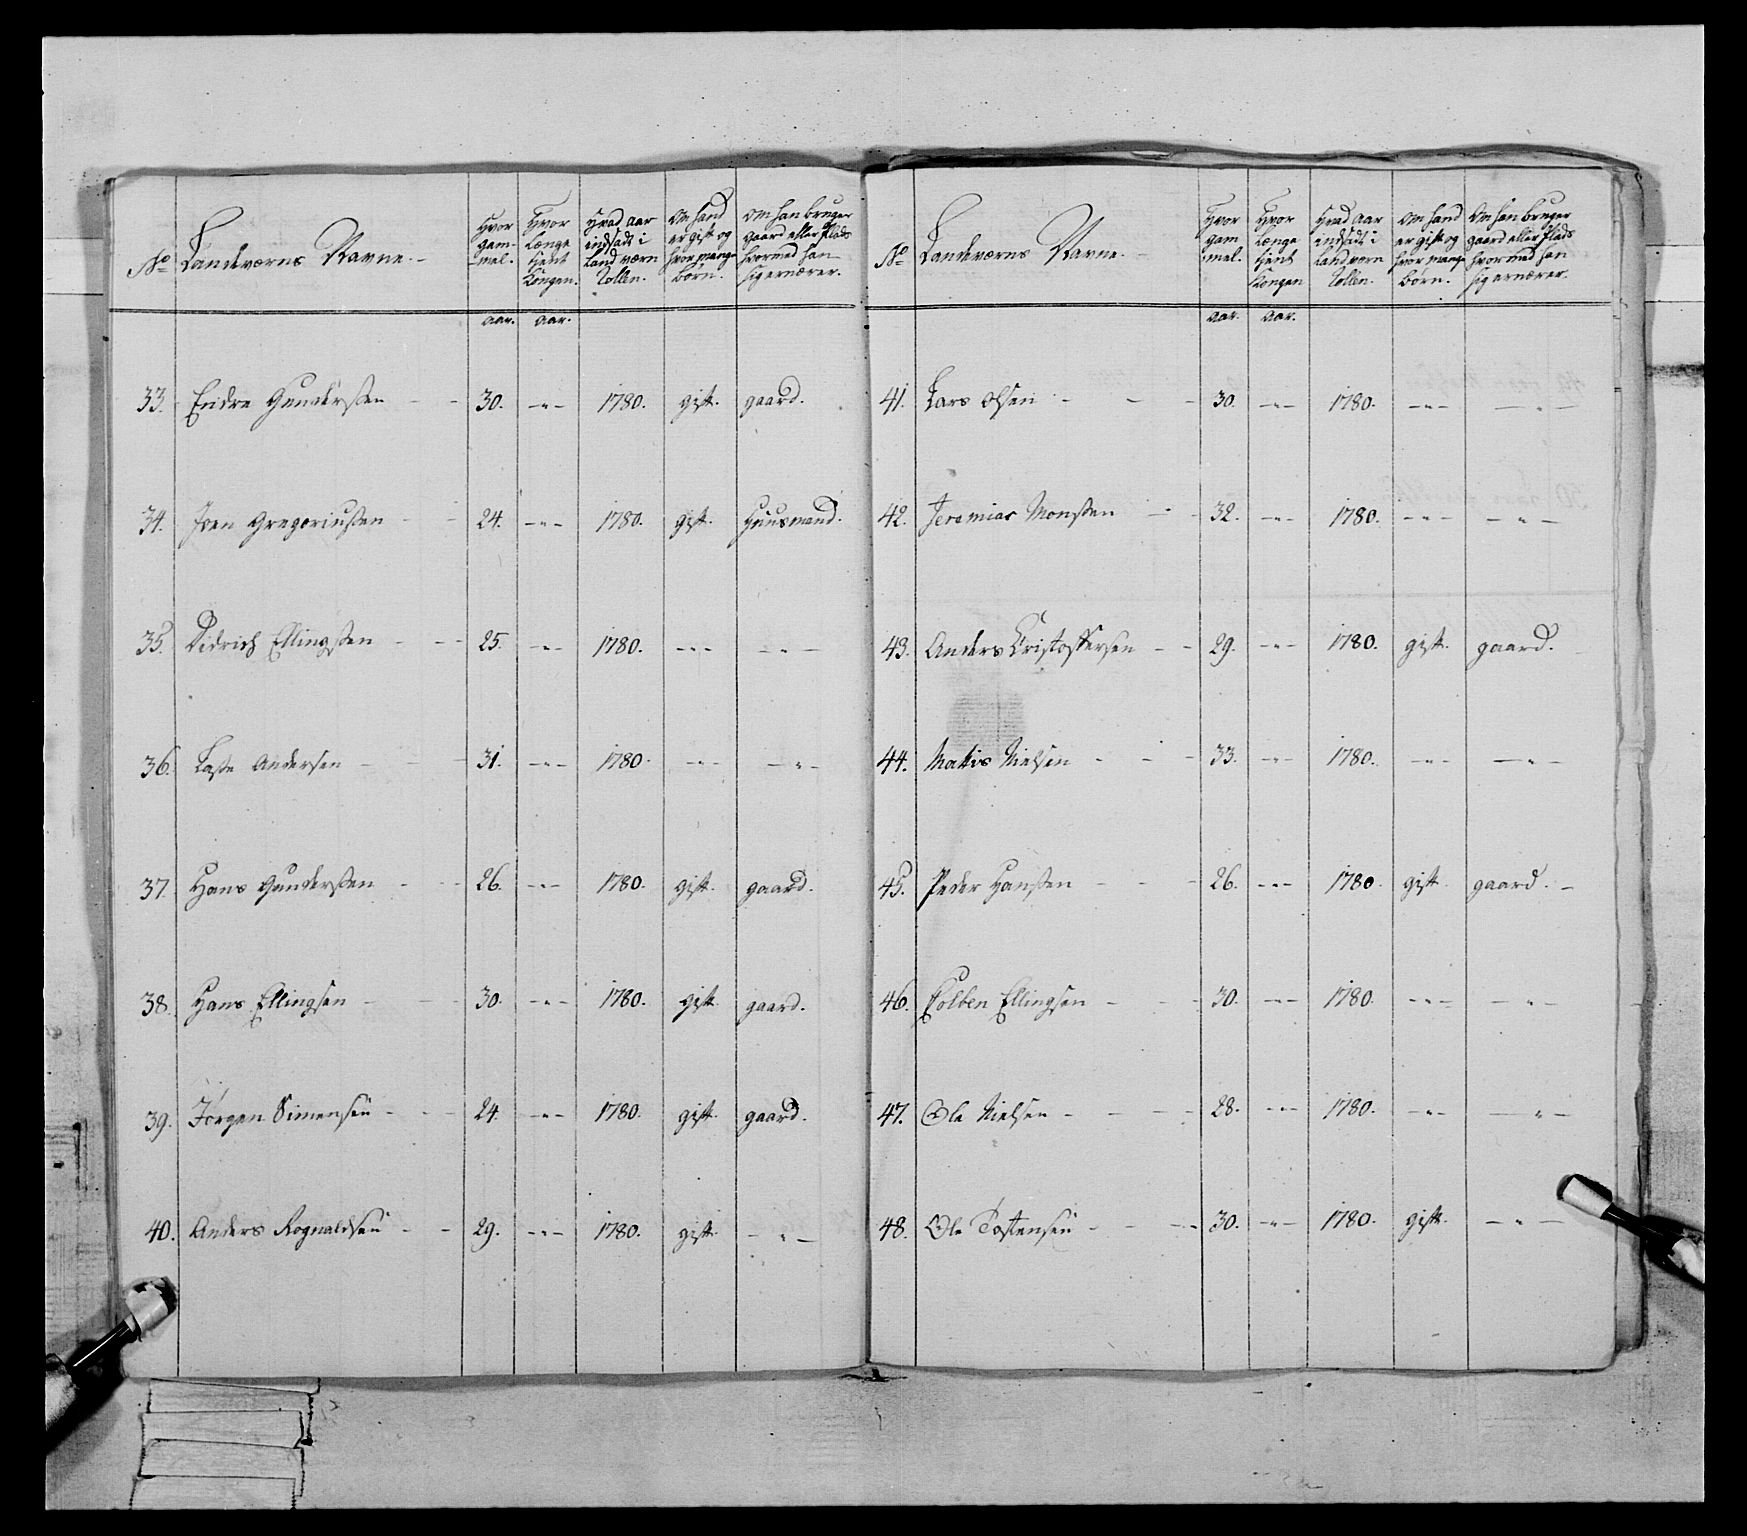 No
Landværns Navne.
Hvor gam-mel.
Hvor Længe tient Kongen.
Hvad aar indsadt i Land værn Rollen.
Om hand er gift og hvor mange børn.
Om han bruger gaard eller Plads hvormed han sig ernærer.
aar. aar.
33. Endre Gunderssen - - 30. -"- 1780. gift. gaard.
34. Iven Gregoriussen - - 24. -"- 1780. gift. Huusmand.
35. Didrich Ellingssen - - 25. -"- 1780. -"- -"-
36. Lasse Andersen - - 31. -"- 1780. -"- -"-
37. Hans Gunderssen - - 26. -"- 1780. gift. gaard.
38. Hans Ellingsen - - 30. -"- 1780. gift. gaard.
39. Jørgen Simensen - - 24. -"- 1780. gift. gaard.
40. Anders Rognaldsen - - 29. -"- 1780. gift. -"-
No
Landværns Navne.
Hvor gam mel.
Hvor Længe tient Kongen
Hvad aar indsadt i Landværn Rollen.
Om hand er gift og hvor mange børn.
Om han bruger gaard eller Plads hvormed han sig ernærer.
aar. aar.
41. Lars Olsen - - - 30. -"- 1780. -"- -"-
42. Jeremias Monssen - - 32. -"- 1780. -"- -"-
43. Anders Cristoffersen - - 29. -"- 1780. gift. gaard.
44. Mattis Nielsen - - - 33. -"- 1780. -"- -"-
45. Peder Hanssen - - - 26. -"- 1780. gift. gaard. -
46. Colben Ellingsen - - - 30. -"- 1780. -"- -"-
47. Ole Nielsen - - - 28. -"- 1780. -"- -"-
48. Ole Tostensen - - - 30. -"- 1780. gift. -"-